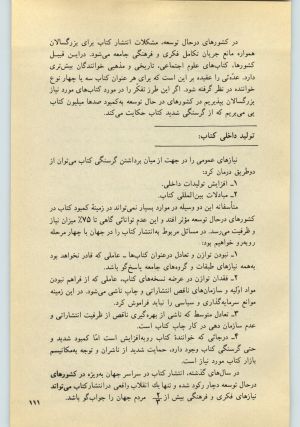 در کشورهای درحال توسعه، مشکلات انتشار کتاب برای بزرگسالان
همواره مانع جریان تکامل فکری و فرهنگی جامعه می‌شود. دراین قبیل
کشورها، کتاب‌های علوم اجتماعی، تاریخی و مذهبی خوانندگان بیش‌تری
دارد. عده‌ئی را عقیده بر این است که برای هر عنوان کتاب سه یا چهار نوع
خواننده در نظر گرفته شود. اگر این طرز تفکر را در مورد کتاب‌های مورد نیاز
بزرگسالان بپذیریم در کشورهای در حال توسعه به‌کمبود صدها میلیون کتاب
پی می‌بریم که از گرسنگی شدید کتاب حکایت می‌کند.
تولید داخلی کتاب:
نیازهای عمومی را در جهت از میان برداشتن گرسنگی کتاب می‌توان از
دوطریق درمان کرد:
۱ـ افزایش تولیدات داخلی.
۲ـ مبادلات بین‌المللی کتاب.
متأسفانه این دو وسیله در موارد بسیار نمی‌تواند در زمینهٔ کمبود کتاب در
کشورهای درحال توسعه مؤثر افتد و این عدم توانائی گاهی تا ۷۵٪ میزان نیاز
و ظرفیت می‌رسد. در مسائل مربوط به‌انتشار کتاب را در جهان با چهار مرحله
روبه‌رو خواهیم بود:
۱ـ نبودن توازن و تعادل درعنوان کتاب‌ها ـ عاملی که قادر نخواهد بود
به‌همه نیازهای طبقات و گروه‌های جامعه پاسخ‌گو باشد.
۲ـ فقدان توازن در عرضه نسخه‌های کتاب، عاملی که از فراهم نبودن
مواد اولیه و سازمان‌های ناقص انتشاراتی و چاپ ناشی می‌شود. در این زمینه
موانع سرمایه‌گذاری و سیاسی را نباید فراموش کرد.
۳ـ تعادل متوسط که ناشی از بهره‌گیری ناقص از ظرفیت انتشاراتی و
عدم سازمان دهی در کار چاپ کتاب است.
۴ـ درجائی که خوانندهٔ کتاب روبه‌افزایش است امّا کمبود شدید و
حتی گرسنگی کتاب وجود دارد، حمایت شدید از ناشران و توجه به‌مکانیسم
بازار کتاب مورد نیاز است.
در سال‌های گذشته، انتشار کتاب در سراسر جهان به‌ویژه در کشورهای
درحال توسعه دچار رکود شده و تنها یك انقلاب واقعی درانتشار کتاب می‌تواند
نیازهای فکری و فرهنگی بیش از مردم جهان را جواب‌گو باشد.
۱۱۱